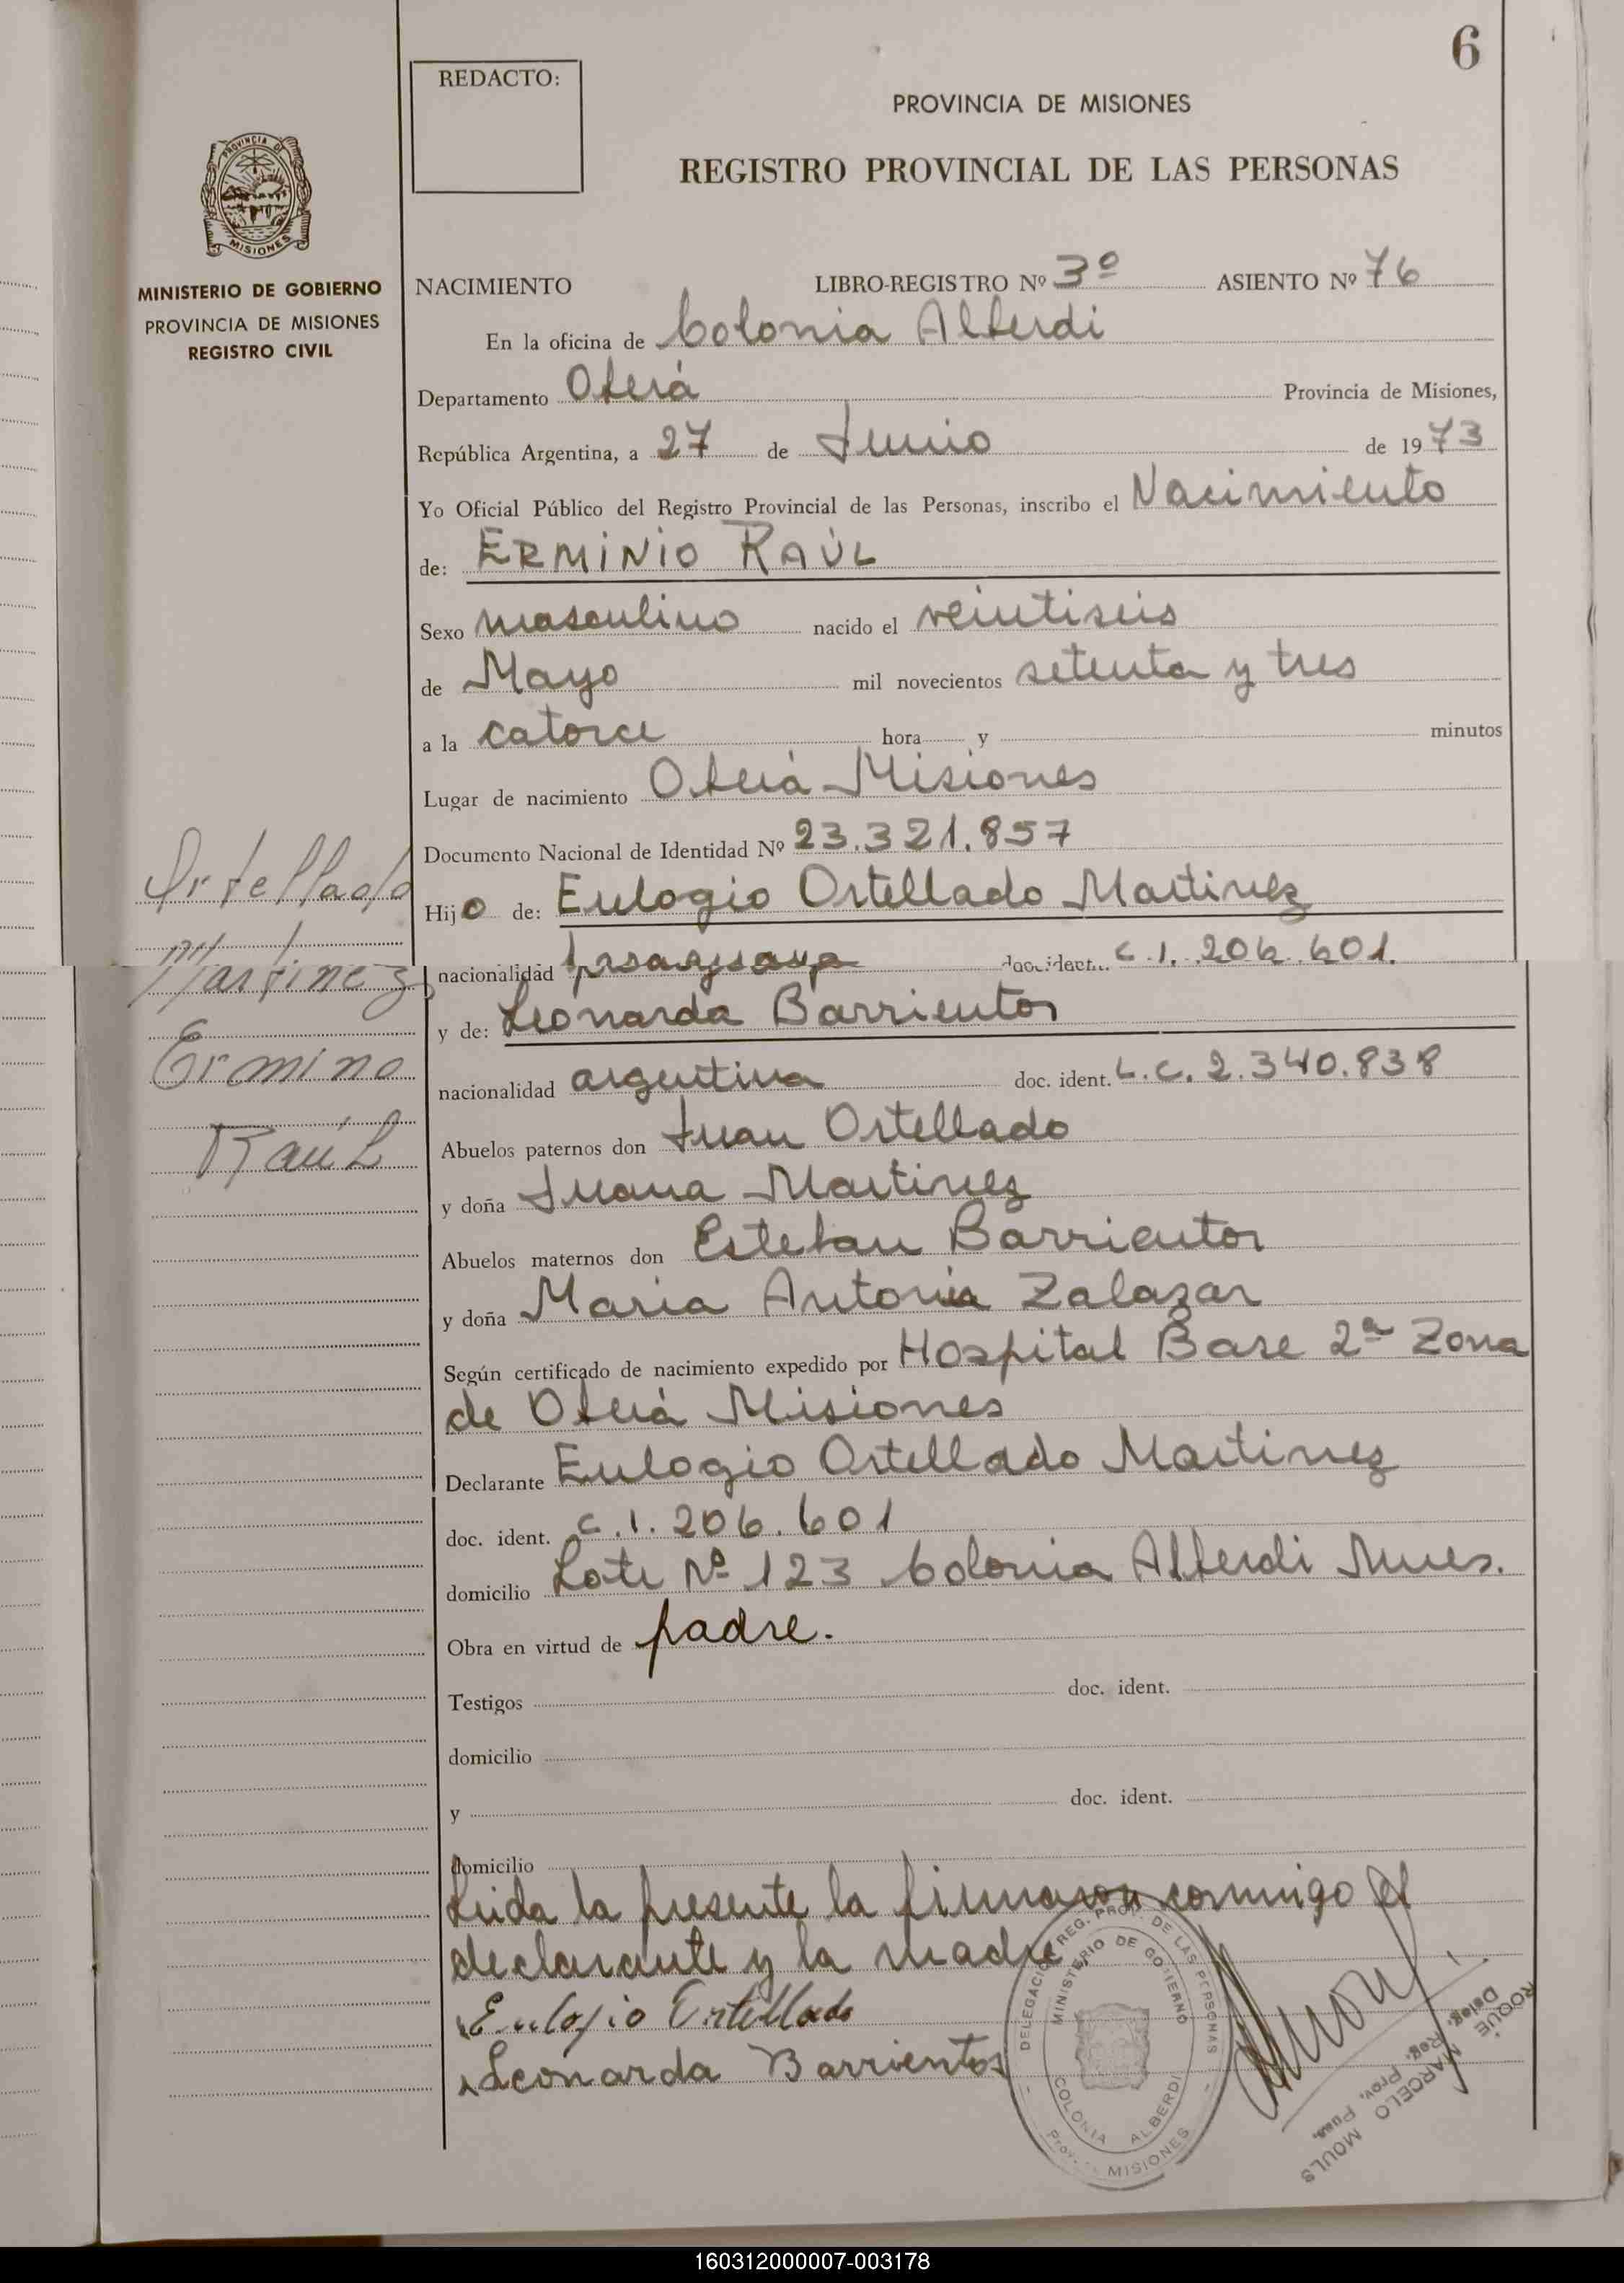 6
REDACTO:
PROVINCIA DE MISIONES
REGISTRO PROVINCIAL DE LAS PERSONAS
PROVINCIA DE
MISIONES
MINISTERIO DE GOBIERNO
PROVINCIA DE MISIONES
REGISTRO CIVIL
NACIMIENTO LIBRO-REGISTRO Nº 3º ASIENTO Nº 76
En la oficina de Colonia Alberdi
Departamento Oberá Provincia de Misiones,
República Argentina, a 27 de Junio de 1973
Yo Oficial Público del Registro Provincial de las Personas, inscribo el Nacimiento
de: ERMINIO RAÚL
Sexo masculino nacido el veintiseis
de Mayo mil novecientos setenta y tres
a la catorce hora y minutos
Lugar de nacimiento Oberá Misiones
Documento Nacional de Identidad Nº 23.321.857
Hijo de: Eulogio Ortellado Martinez
nacionalidad paraguaya doc. ident. C.I. 206.601.
y de: Leonarda Barrientos
nacionalidad argentina doc. ident. L.C. 2.340.838
Abuelos paternos don Juan Ortellado
y doña Juana Martinez
Abuelos maternos don Esteban Barrientos
y doña Maria Antonia Zalazar
Según certificado de nacimiento expedido por Hospital Base 2ª Zona
de Oberá Misiones
Declarante Eulogio Ortellado Martinez
doc. ident. C.I. 206.601
domicilio Lote Nº 123 Colonia Alberdi Mnes.
Obra en virtud de padre.
Testigos doc. ident.
domicilio
y doc. ident.
domicilio
Leida la presente la firmaron conmigo el
declarante y la madre
Eulogio Ortellado
Leonarda Barrientos
Ortellado
Martinez
Ermino
Raúl
DELEGACION REG. PROV. DE LAS PERSONAS
MINISTERIO DE GOBIERNO
COLONIA ALBERDI
Prov. MISIONES
ROQUE MARCELO MOULS
Deleg. Reg. Prov. Pers.
160312000007-003178